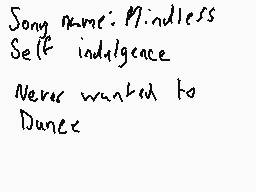 Song name: Mindless
Self indulgence
Never wanted to
Dance